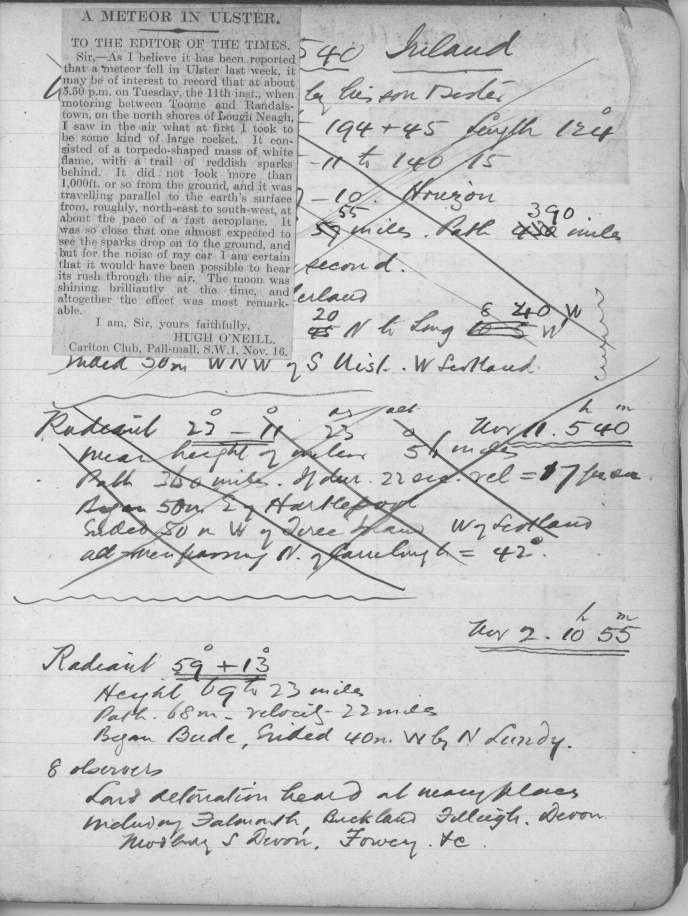 A METEOR IN ULSTER.
TO THE EDITOR OF THE TIMES.
Sir,—As I believe it has been reported
that a meteor fell in Ulster last week, it
may be of interest to record that at about
5.50 p.m. on Tuesday, the 11th inst., when
motoring between Toome and Randals-
town, on the north shores of Lough Neagh,
I saw in the air what at first I took to
be some kind of large rocket. It con-
sisted of a torpedo-shaped mass of white
flame, with a trail of reddish sparks
behind. It did not look more than
1,000ft. or so from the ground, and it was
travelling parallel to the earth's surface
from, roughly, north-east to south-west, at
about the pace of a fast aeroplane. It
was so close that one almost expected to
see the sparks drop on to the ground, and
but for the noise of my car I am certain
that it would have been possible to hear
its rush through the air. The moon was
shining brilliantly at the time, and
altogether the effect was most remark-
able.
I am, Sir, yours faithfully,
HUGH O'NEILL.
Carlton Club, Pall-mall, S.W.1, Nov. 16.
540 Ireland
by his son
194 + 45 length 124
- 11 to 140 15
- 10. Horizon
55 390
miles. Path miles
second.
20 8 40 W
N to Long W
Ended 30m WNW of S Uist. W Scotland
Radiant 23° - 11° 23 Nov 11. 5h 40m
mean height of meteor 56 miles
Path 360 miles. If dur. 22 sec. vel = 17 per sec.
Began 50m E of Hartlepool
Ended 50 m W of Tiree Island W of Scotland
alt when passing N. of = 42°.
Nov 2. 10h 55m
Radiant 59° + 13°
Height 69 to 23 miles
Path. 68m - velocity 22 miles
Began Bude, Ended 40m. W by N Lundy.
8 observers
Loud detonation heard at many places
including Falmouth, Buckland Filleigh. Devon
Modbury S Devon, Fowey. &c